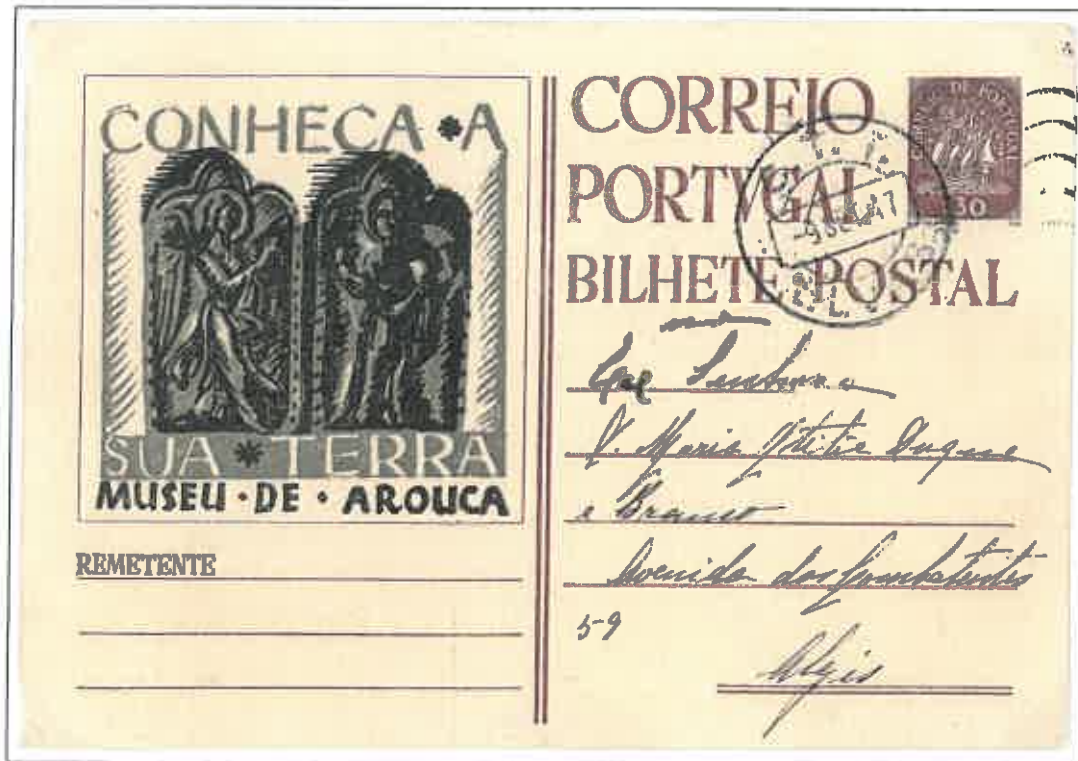 CONHEÇA * A
SUA * TERRA
MUSEU · DE · AROUCA
REMETENTE
CORREIO
PORTVGAL
BILHETE POSTAL
CORREIO DE PORTUGAL
30
-9 SET 47
D. Maria Duque
e Branco
Avenida dos Combatentes
59
Algés